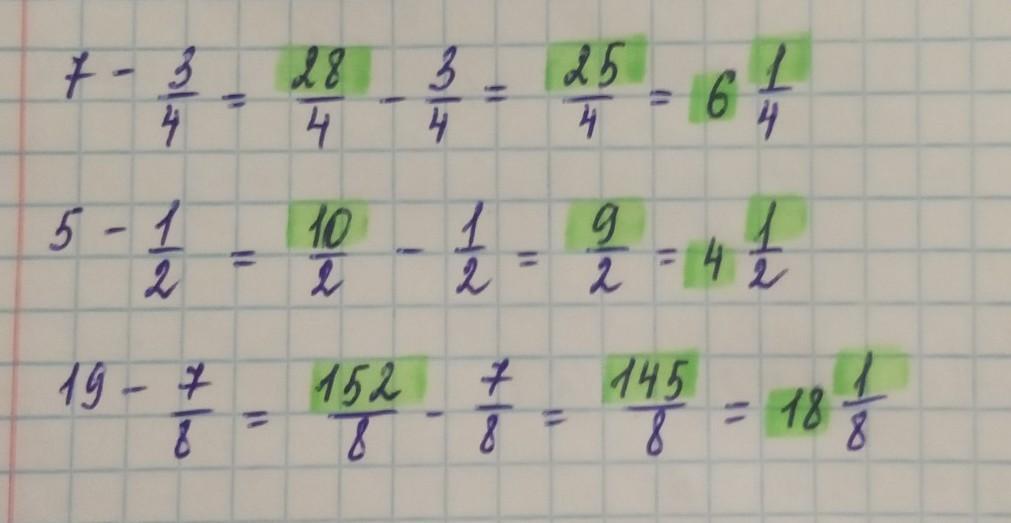 7 - 3/4 = 28/4 - 3/4 = 25/4 = 6 1/4
5 - 1/2 = 10/2 - 1/2 = 9/2 = 4 1/2
19 - 7/8 = 152/8 - 7/8 = 145/8 = 18 1/8